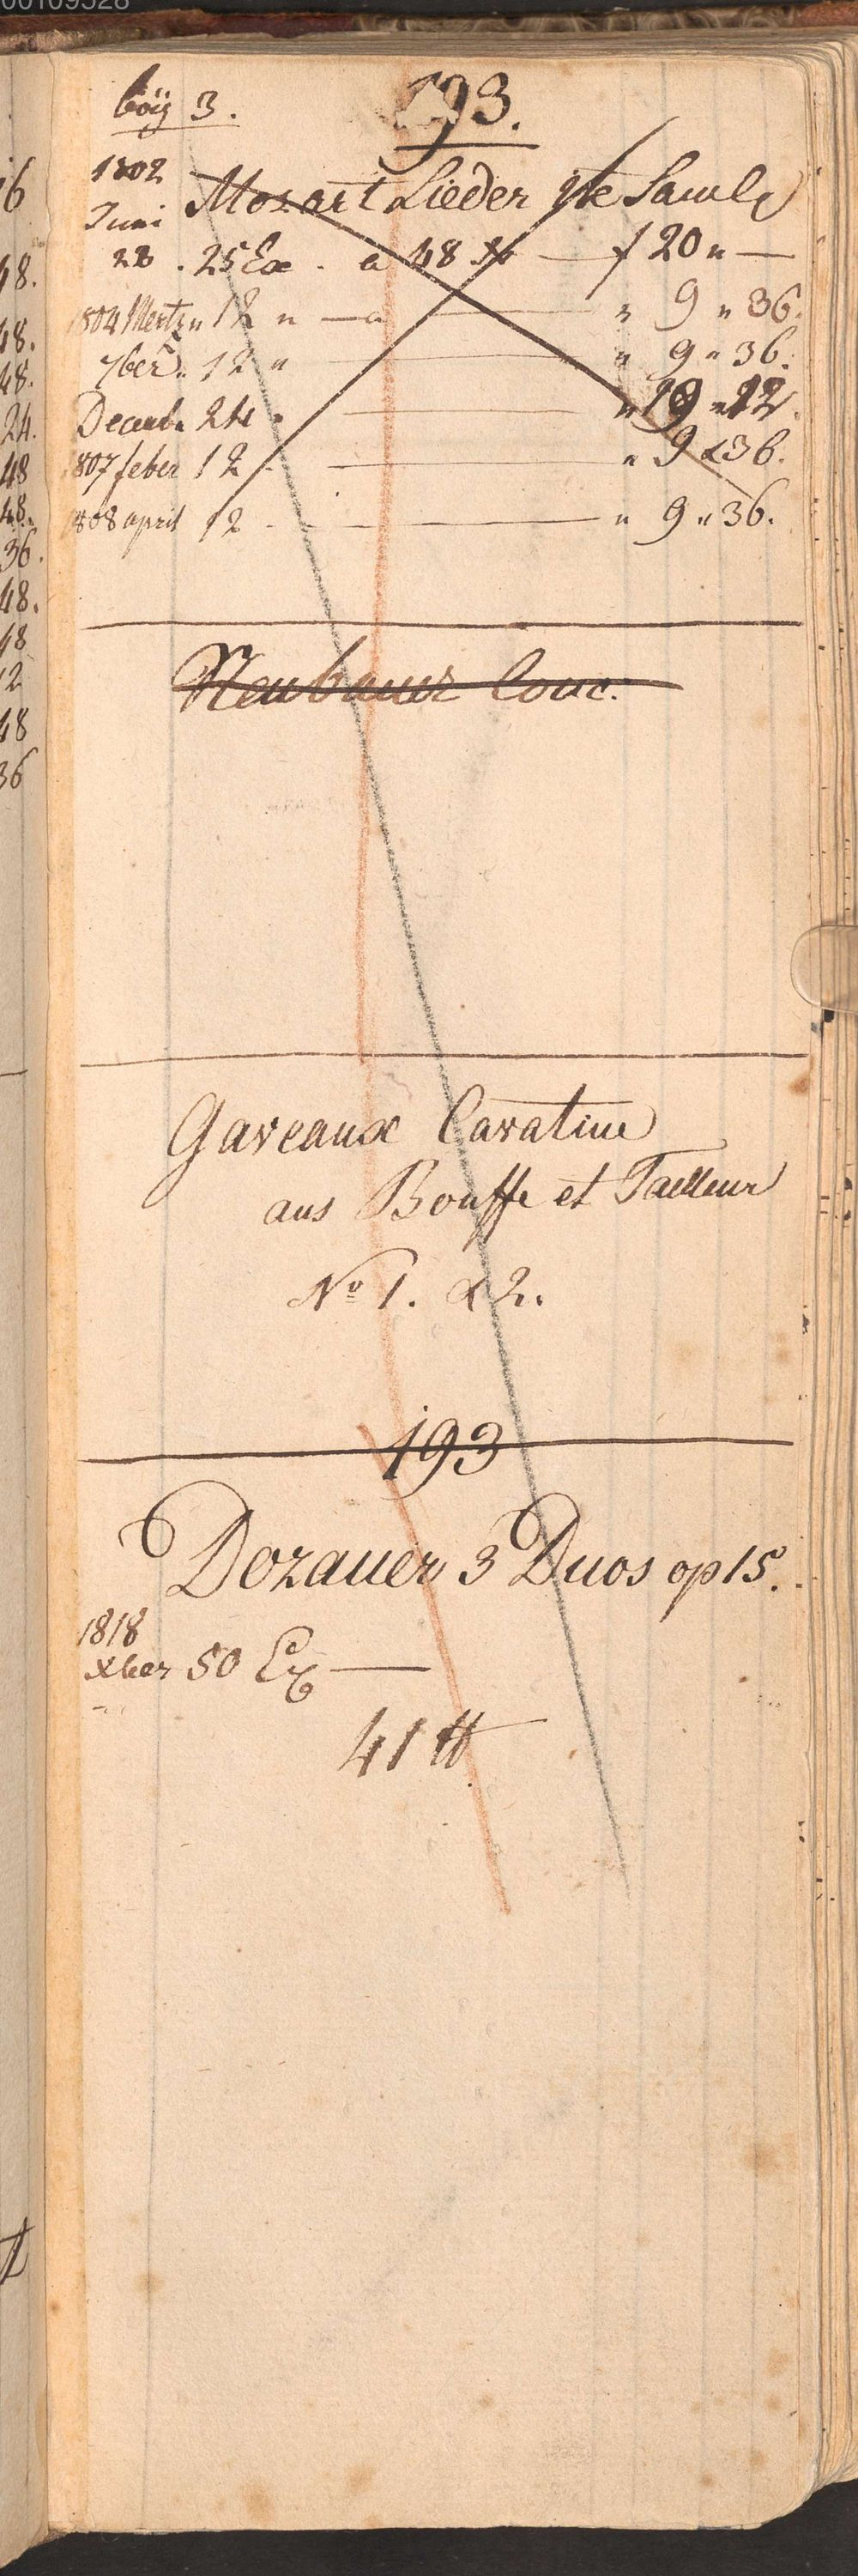 00109528
böÿ 3. 193.
1802 Mozart Lieder Samlg
Juni
28 . 25 Ex . a 48 x — f 20 " —
804 Mertz " 12 " — a — " 9 " 36.
7ber " 12 " — " 9 " 36.
Decemb. 24 " — " 19 " 12.
807 feber 12 " — " 9 " 36.
808 april 12 - — " 9 " 36.
Neubauer Conc:
Gaveaux Cavatine
aus Bouffe et Tailleur
No 1. & 2.
193
Dozauer 3 Duos op 15.
1818
Xber 50 Ex —
41 ℔
6
48.
48.
48.
24.
48
48.
36.
48.
48
12
48
36